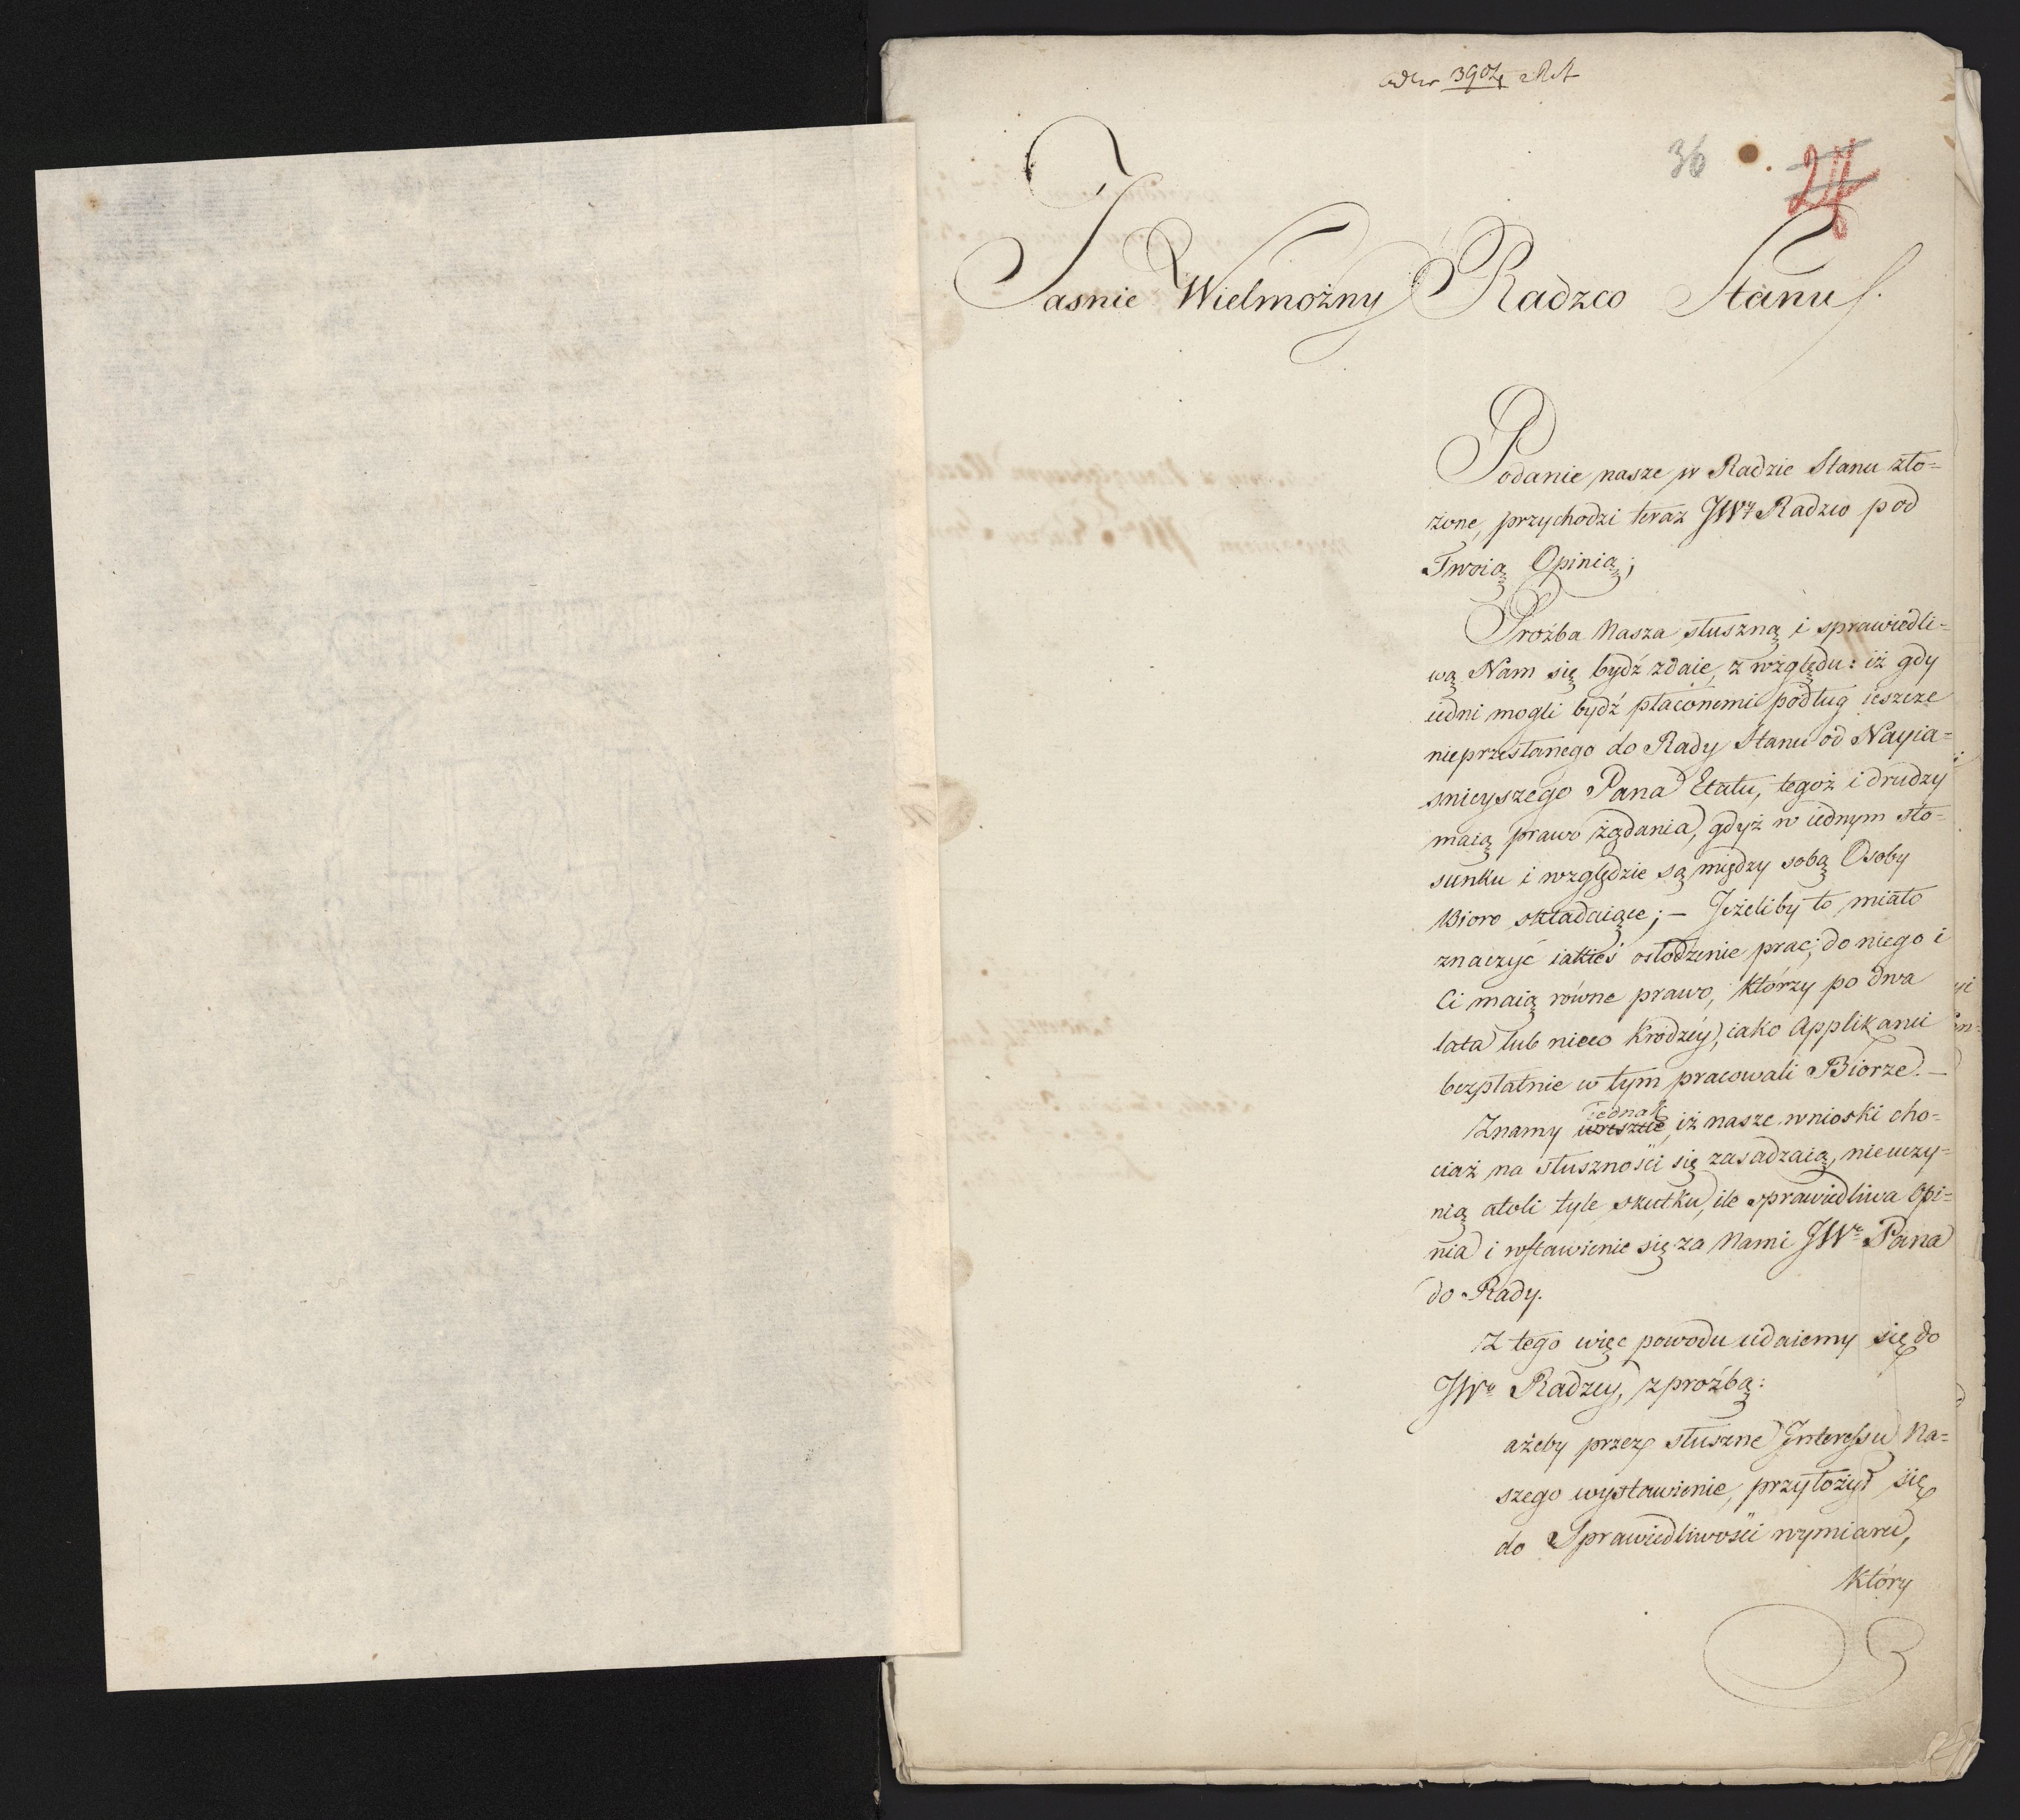 3904
36
24
Jasnie Wielmożny Radzco Stanu.
Podanie nasze w Radzie Stanu zło=
żone, przychodzi teraz JWy Radzco pod
Twoią Opinią;
Proźba Nasza słuszną i sprawiedli=
wą Nam się bydź zdaie, z względu: iż gdy
iedni mogli bydź płaconemi podług ieszcze
nieprzesłanego do Rady Stanu od Nayia=
snieyszego Pana Etatu, tegoż i drudzy
maią prawo żądania, gdyż w iednym sto=
sunku i względzie są między sobą Osoby
Bioro składaiące; – Jeżeliby to miało
znaczyć iakieś osłodzenie prac, do niego i
Ci maią równe prawo, którzy po dwa
lata lub nieco krodzéy, iako Applikanci
bezpłatnie w tym pracowali Biorze. –
Znamy wreszcie jednak, iż nasze wnioski cho=
ciaż na słuszności się zasadzaią, nieuczy=
nią atoli tyle skutku, ile sprawiedliwa Opi=
nia i wstawienie się za Nami JWo Pana
do Rady.
Z tego więc powodu udaiemy się do
JWo Radzcy, z proźbą:
ażeby przez słuszne Interessu Na=
szego wystawienie, przyłożył się
do Sprawiedliwości wymiaru,
który